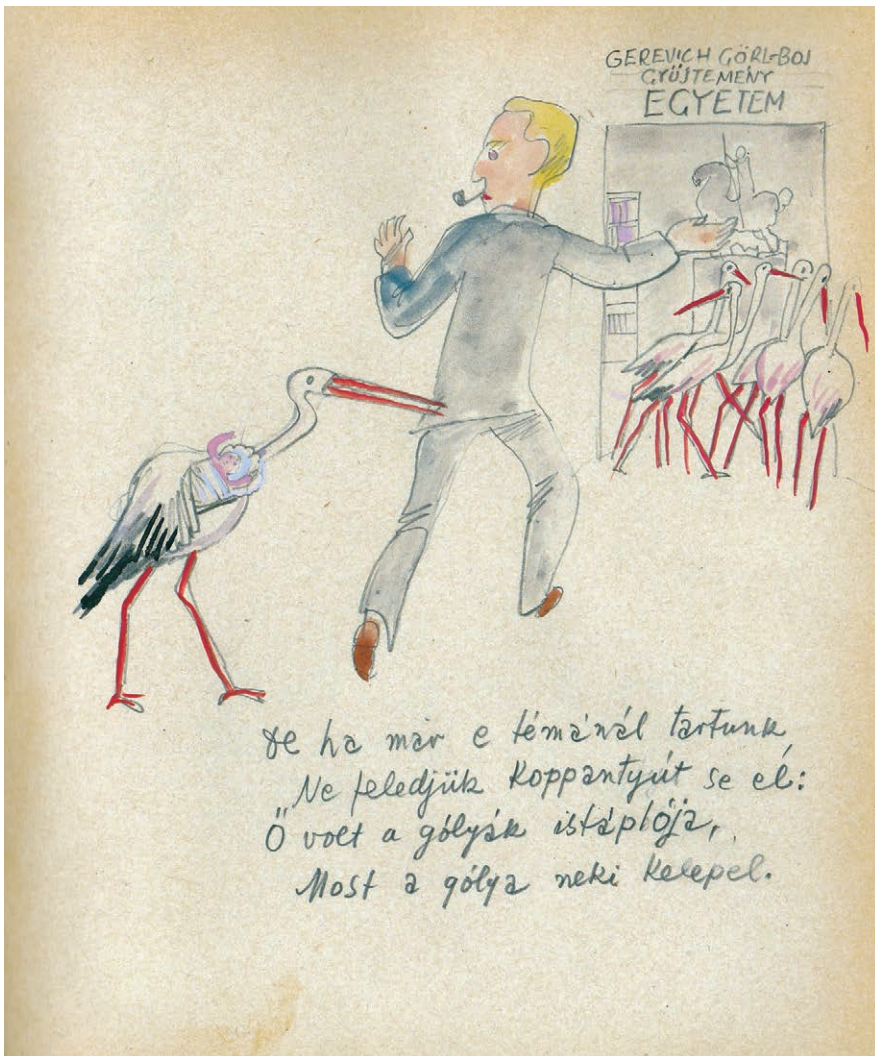 GEREVICH GÖRL-BOJ
GYŰJTEMÉNY
EGYETEM
De ha már e témánál tartunk
Ne feledjük Koppantyút se el:
Ő volt a gólyák istáplója,
Most a gólya neki kelepel.